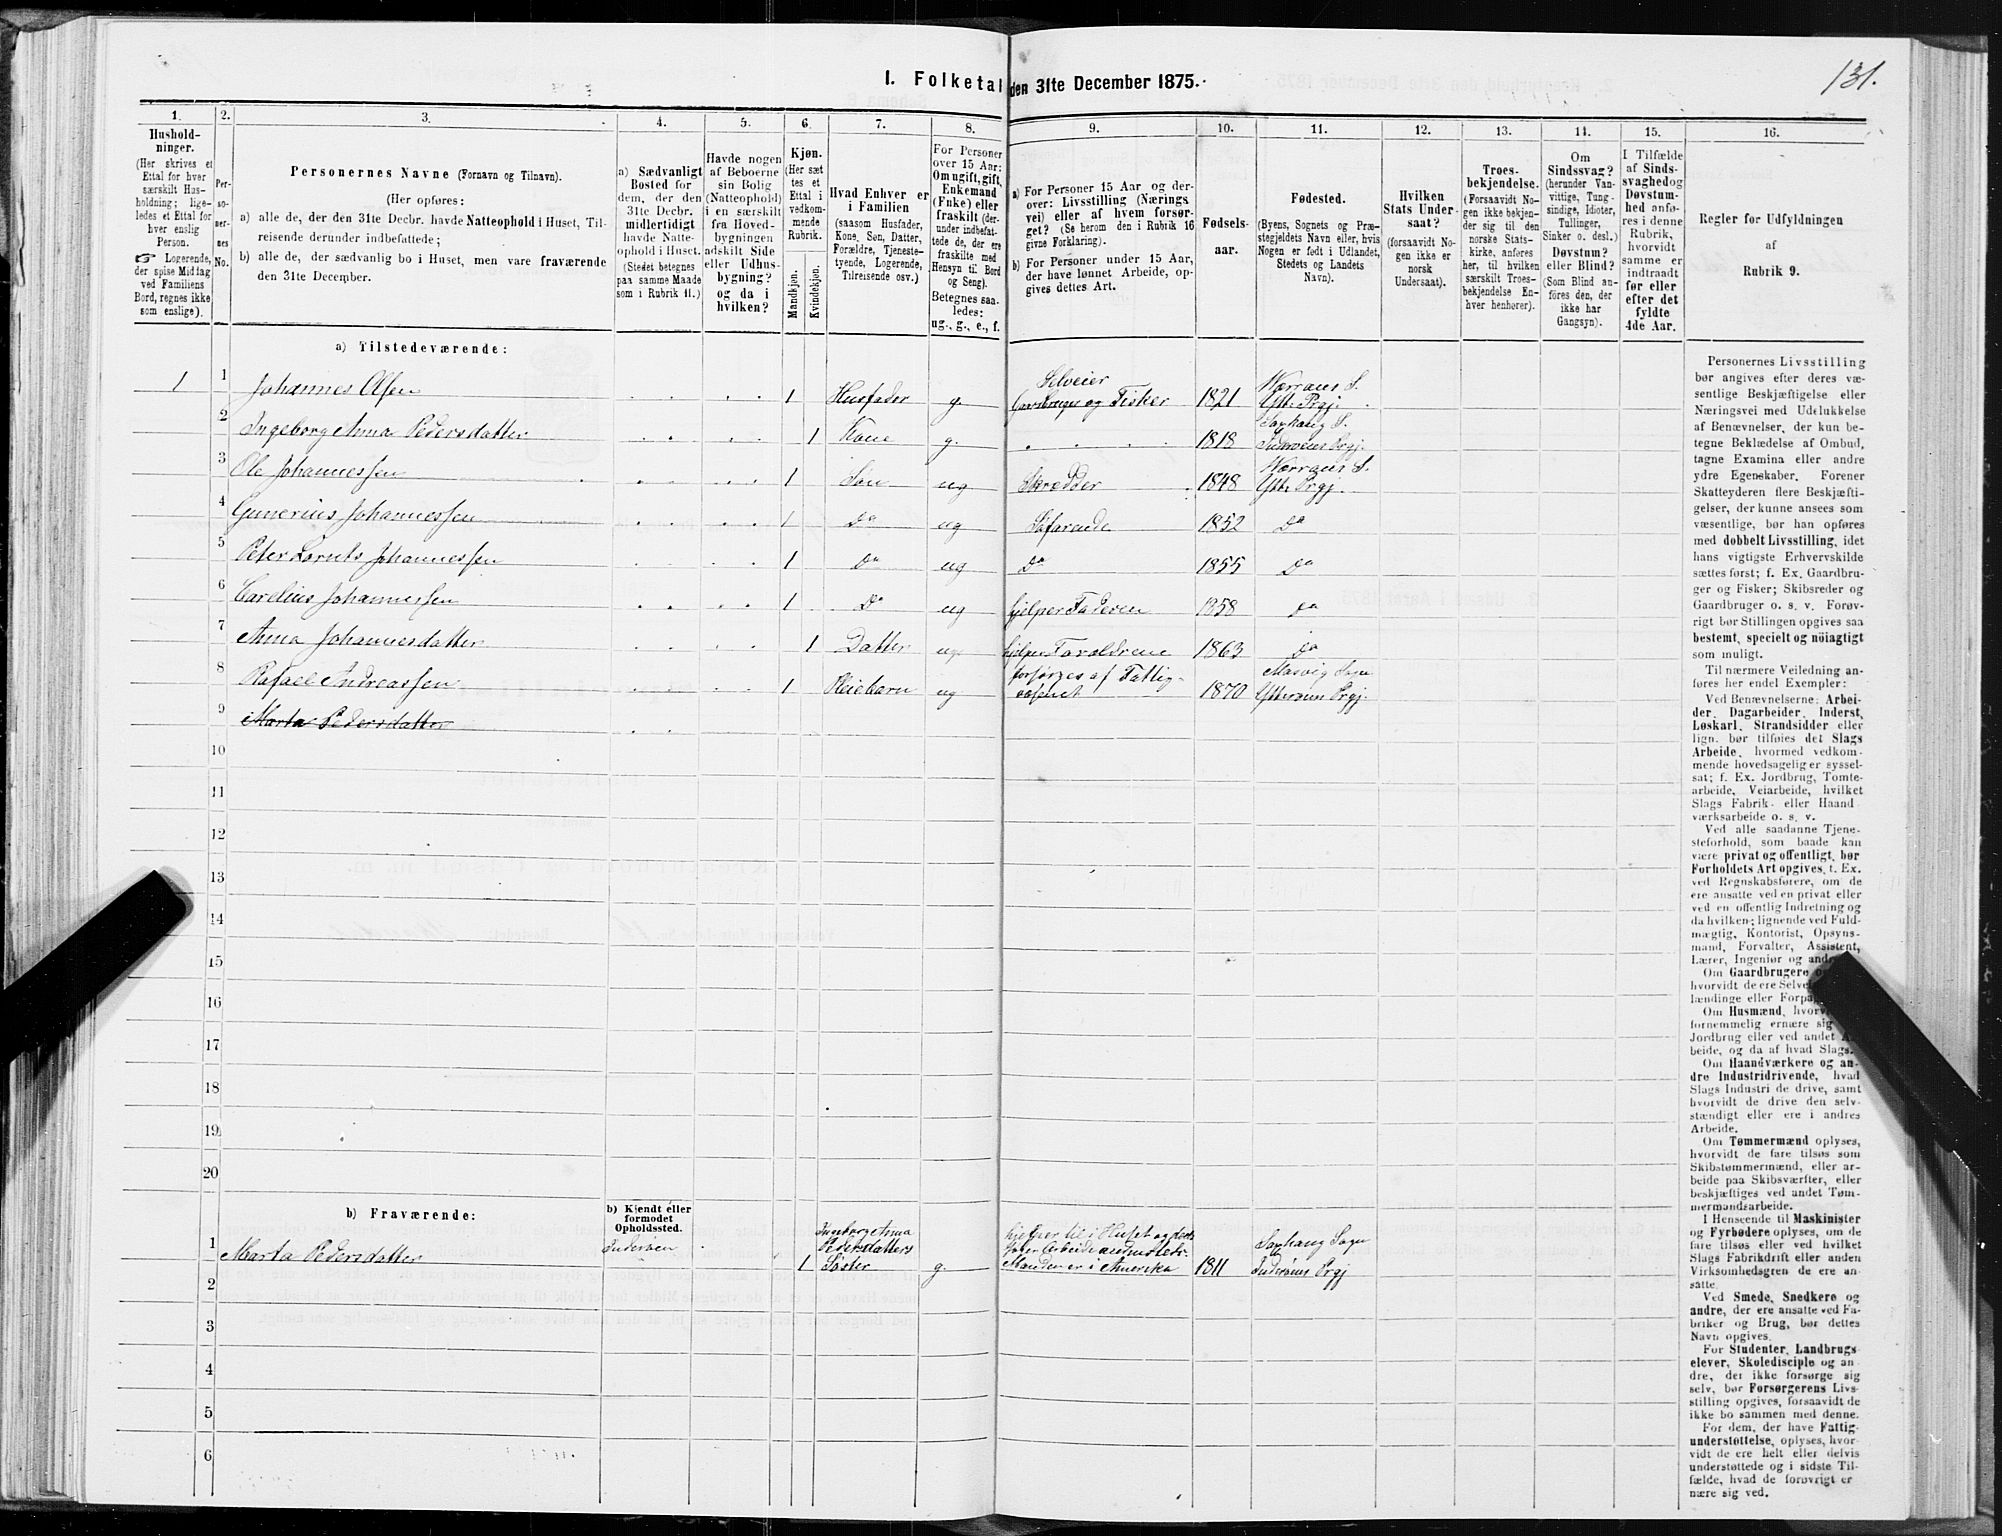 131.
I. Folketal den 31te December 1875.
1.
Hushold-
ninger.
(Her skrives et
Ettal for hver
særskilt Hus-
holdning; lige-
ledes et Ettal for
hver enslig
Person.
☞ Logerende,
der spise Middag
ved Familiens
Bord, regnes ikke
som enslige).
2.
Per-
so-
ner-
nes
No.
3.
Personernes Navne (Fornavn og Tilnavn).
(Her opføres:
a) alle de, der den 31te Decbr. havde Natteophold i Huset, Til-
reisende derunder indbefattede;
b) alle de, der sædvanlig bo i Huset, men vare fraværende
den 31te December.
4.
a) Sædvanligt
Bosted for
dem, der den
31te Decbr.
midlertidigt
havde Natte-
ophold i Huset.
(Stedet betegnes
paa samme Maade
som i Rubrik 11.)
5.
Havde nogen
af Beboerne
sin Bolig
(Natteophold)
i en særskilt
fra Hoved-
bygningen
adskilt Side
eller Udhus-
bygning?
og da i
hvilken?
6.
Kjøn.
(Her sæt
tes et
Ettal i
vedkom-
mende
Rubrik.
Mandkjøn.
Kvindekjøn.
7.
Hvad Enhver er
i Familien
(saasom Husfader,
Kone, Søn, Datter,
Forældre, Tjeneste-
tyende, Logerende,
Tilreisende osv.)
8.
For Personer
over 15 Aar:
Om ugift, gift,
Enkemand
(Enke) eller
fraskilt (der-
under indbefat-
tede de, der ere
fraskilte med
Hensyn til Bord
og Seng).
Betegnes saa-
ledes:
ug., g., e., f.
9.
a) For Personer 15 Aar og der-
over: Livsstilling (Nærings
vei) eller af hvem forsør-
get? (Se herom den i Rubrik 16
givne Forklaring).
b) For Personer under 15 Aar,
der have lønnet Arbeide, op-
gives dettes Art.
10.
Fødsels-
aar.
11.
Fødested.
(Byens, Sognets og Præ-
stegjeldets Navn eller, hvis
Nogen er født i Udlandet,
Stedets og Landets
Navn).
12.
Hvilken
Stats Under-
saat?
(forsaavidt No-
gen ikke er
norsk
Undersaat).
13.
Troes-
bekjendelse.
(Forsaavidt No-
gen ikke bekjen-
der sig til den
norske Stats-
kirke, anføres
her, til hvilken
særskilt Troes-
bekjendelse En-
hver henhører).
14.
Om
Sindssvag?
(herunder Van-
vittige, Tung-
sindige, Idioter,
Tullinger,
Sinker o. desl.)
Døvstum?
eller Blind?
(Som Blind an-
føres den, der
ikke har
Gangsyn).
15.
I Tilfælde
af Sinds-
svaghed og
Døvstum-
hed anfø-
res i denne
Rubrik,
hvorvidt
samme er
indtraadt
før eller
efter det
fyldte
4de Aar.
16.
Regler for Udfyldningen
af
Rubrik 9.
a) Tilstedeværende:
1 1 Johannes Olsen 1 Husfader g. Selveier Gaardbruger og Fisker 1821 Værrans S. Ytt. Prgj.
2 Ingeborg Anna Pedersdatter 1 Kone g. 1818 Saxhaug S. Inderøens Prgj.
3 Ole Johannessen 1 Søn ug Skrædder 1848 Værrans S. Ytt. Prgj.
4 Gunerius Johannessen 1 Do ug Søfarende 1852 Do
5 Peter Lornts Johannessen 1 Do ug Do 1855 Do
6 Cardius Johannessen 1 Do ug hjelper Faderen 1858 Do
7 Anna Johannesdatter 1 Datter ug. hjelper Forældrene 1863 Do
8 Rafael Andreassen 1 Pleiebarn ug forsørges af Fattigvæsenet 1870 Mosvig Sogn Ytterøens Prgj.
9 Marta Pedersdatter
10
11
12
13
14
15
16
17
18
19
20
b) Fraværende:
b) Kjendt eller
formodet
Opholdssted.
1 Marta Pedersdatter Inderøen 1 Ingeborg Anna Pedersdatters Søster g. hjelper til i Huset og Manden er i Amerika 1811 Saxhaug Sogn Inderøens Prgj
2
3
4
5
6
Personernes Livsstilling
bør angives efter deres væ-
sentlige Beskjæftigelse eller
Næringsvei med Udelukkelse
af Benævnelser, der kun be-
tegne Beklædelse af Ombud,
tagne Examina eller andre
ydre Egenskaber. Forener
Skatteyderen flere Beskjæfti-
gelser, der kunne ansees som
væsentlige, bør han opføres
med dobbelt Livsstilling, idet
hans vigtigste Erhvervskilde
sættes først; f. Ex. Gaardbru-
ger og Fisker; Skibsreder og
Gaardbruger o. s. v. Forøv-
rigt bør Stillingen opgives saa
bestemt, specielt og nöiagtigt
som muligt.
Til nærmere Veiledning an-
føres her endel Exempler:
Ved Benævnelserne: Arbei-
der, Dagarbeider, Inderst,
Løskarl, Strandsidder eller
lign. bør tilføies det Slags
Arbeide, hvormed vedkom-
mende hovedsagelig er syssel-
sat; f. Ex. Jordbrug, Tomte-
arbeide, Veiarbeide, hvilket
Slags Fabrik- eller Haand
værksarbeide o. s. v.
Ved alle saadanne Tjene-
steforhold, som baade kan
være privat og offentligt, bør
Forholdets Art opgives, f. Ex.
ved Regnskabsførere, om de
ere ansatte ved en privat eller
ved en offentlig Indretning og
da hvilken; lignende ved Fuld-
mægtig, Kontorist, Opsyns-
mand, Forvalter, Assistent,
Lærer, Ingeniør og
Om Gaardbrugere
hvorvidt de ere
lændinge eller
Om Husmænd,
fornemmelig ernære sig
Jordbrug eller ved andet
beide, og da af hvad Slags.
Om Haandværkere og an-
dre Industridrivende, hvad
Slags Industri de drive, samt
hvorvidt de drive den selv-
stændigt eller ere i andres
Arbeide.
Om Tømmermænd oplyses,
hvorvidt de fare tilsøs som
Skibstømmermænd, eller ar-
beide paa Skibsværfter, eller
beskjæftiges ved andet Tøm-
mermandsarbeide.
I Henseende til Maskinister
og Fyrbødere oplyses, om de
fare tilsøs eller ved hvilket
Slags Fabrikdrift eller anden
Virksomhedsgren de ere an-
satte.
Ved Smede, Snedkere og
andre, der ere ansatte ved Fa-
briker og Brug, bør dettes
Navn opgives.
For Studenter, Landbrugs-
elever, Skoledisciple og an-
dre, der ikke forsørge sig
selv, bør Forsørgerens Livs-
stilling opgives, forsaavidt de
ikke bo sammen med denne.
For dem, der have Fattig-
understøttelse, oplyses, hvor-
vidt de ere helt eller delvis
understøttede og i sidste Til-
fælde, hvad de forøvrigt er
nære sig ved.